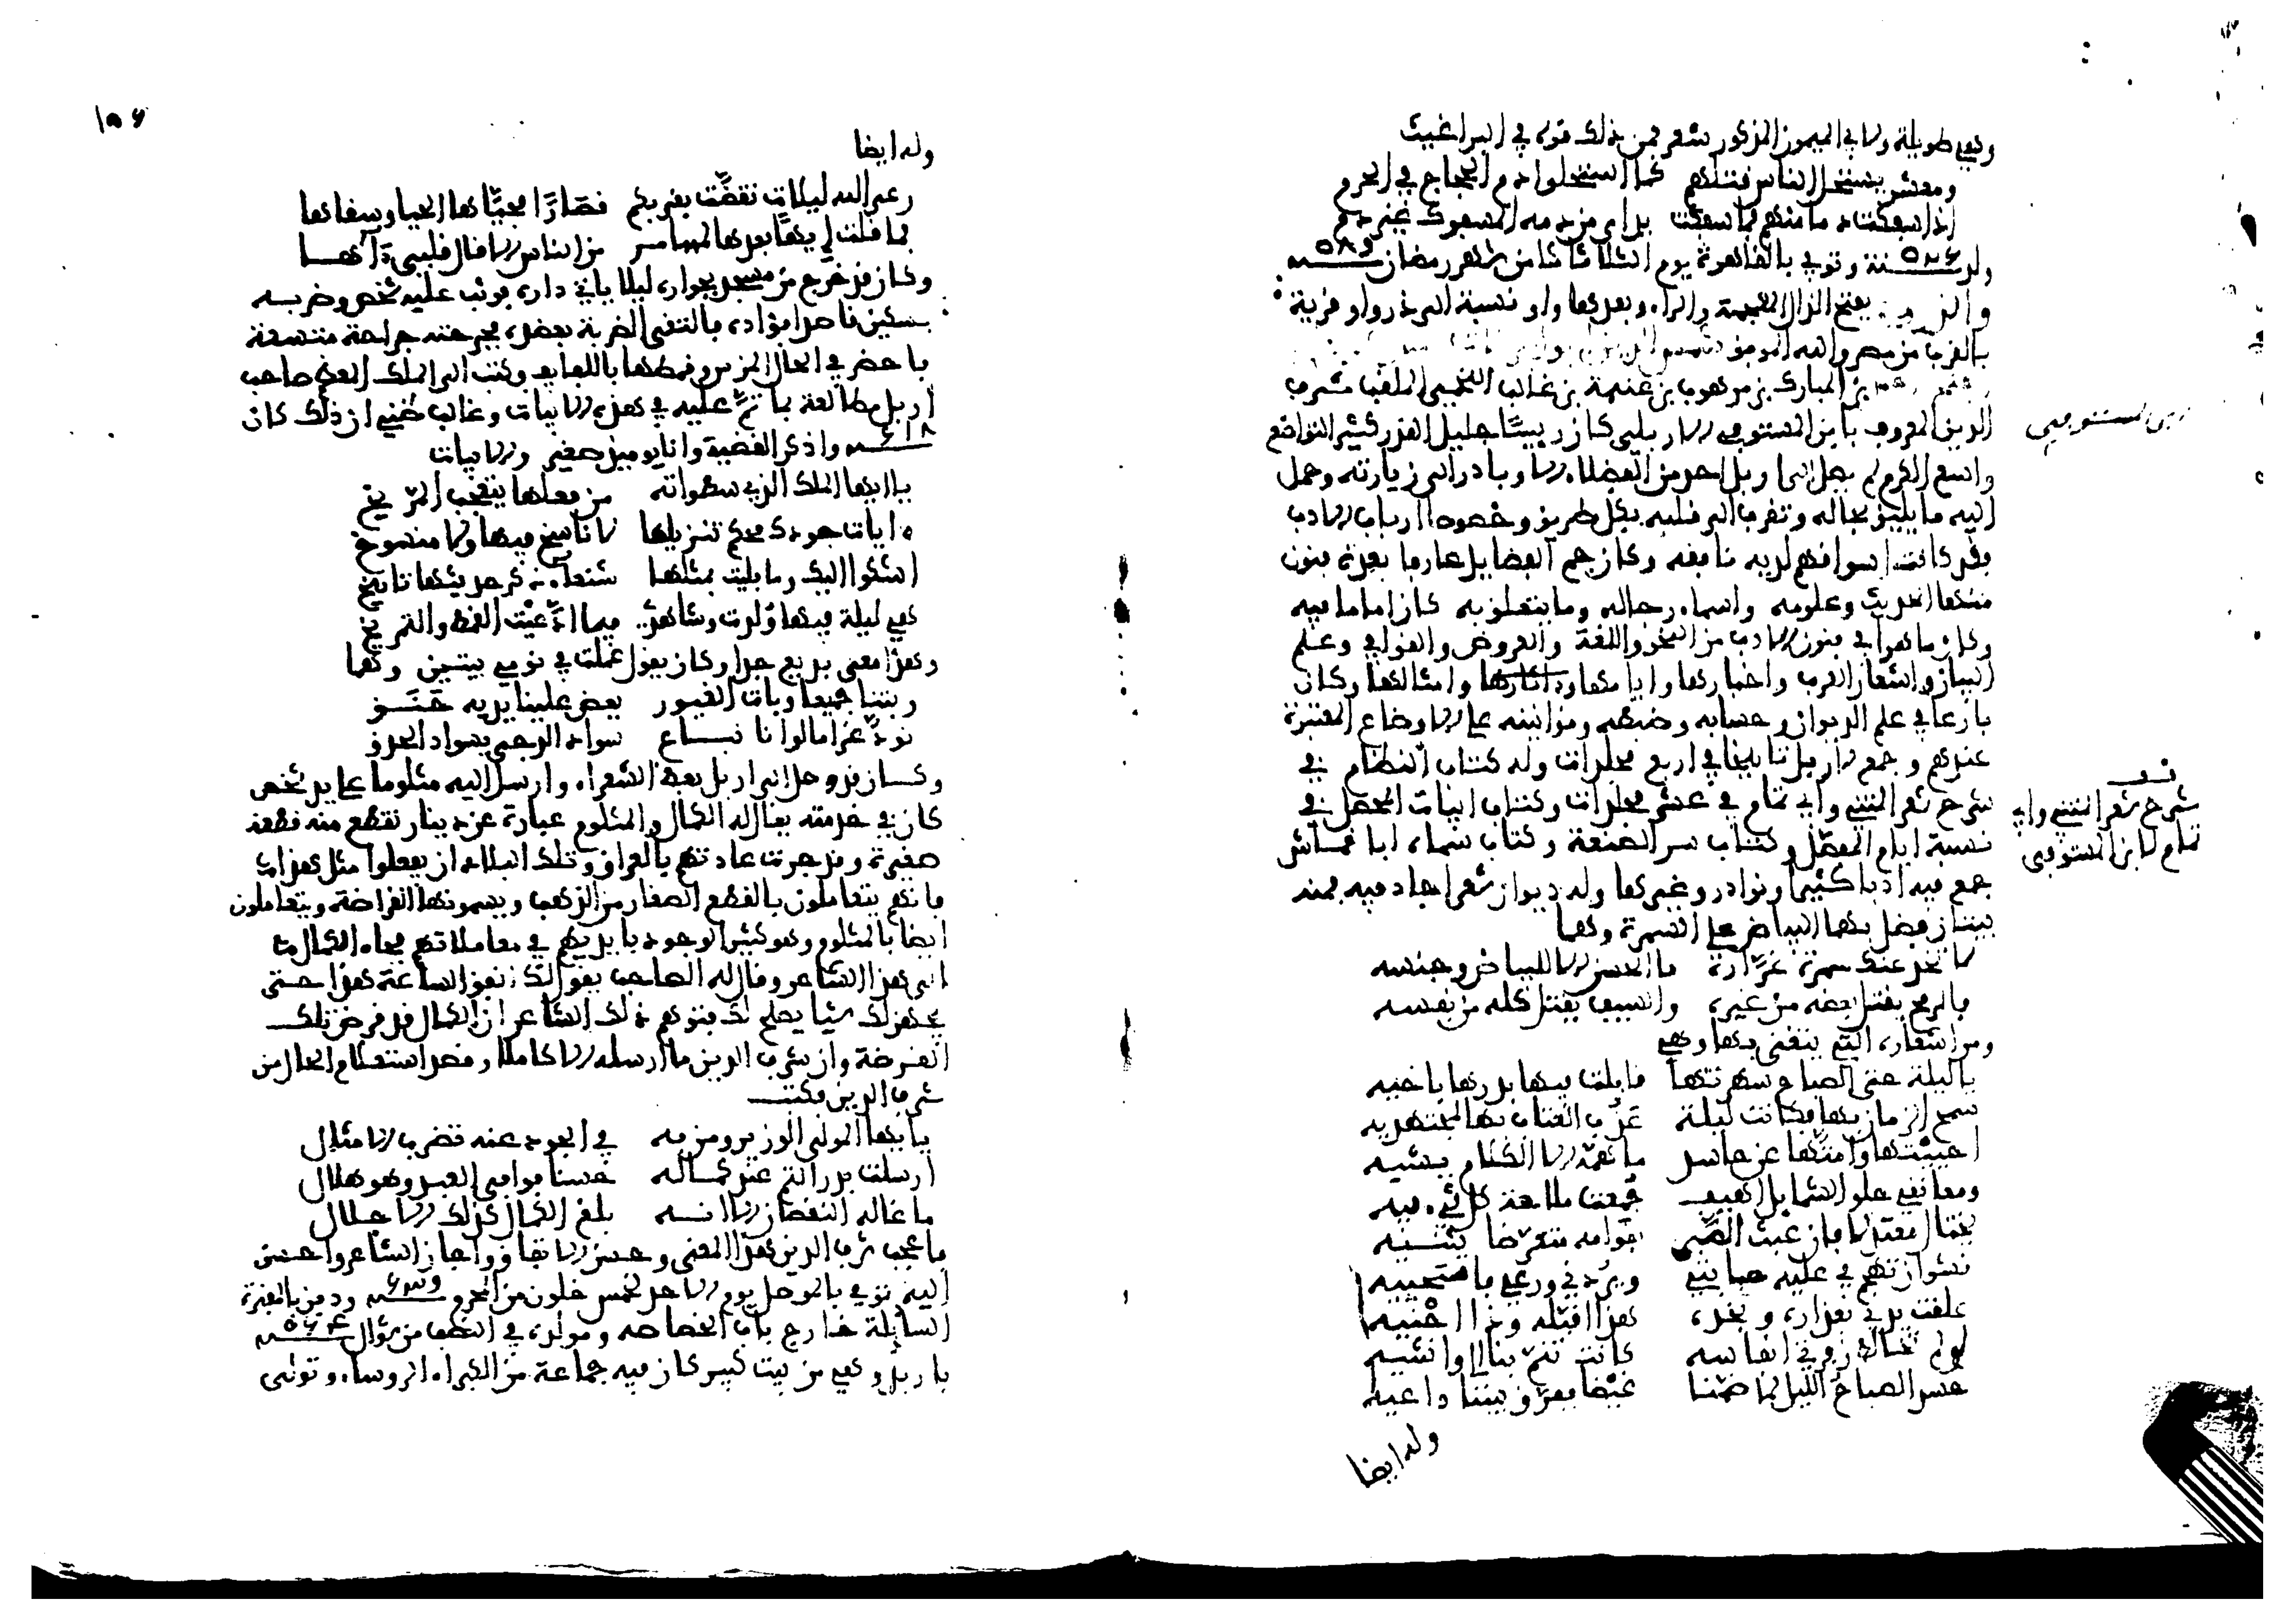 وهي طويلة ولابي الميمون المذكور شعر فمن ذلك قوله في البراغيث
ومعشر يستحل الناس قتلهم كما استحلوا دم الحجاج في الحرم
اذا سفكت دما منهم فما سفكت يداي من دمه المسفوك غير دمي
ولد سنة ٥٢٤ وتوفي بالقاهرة يوم الثلاثا ثامن شهر رمضان سنة ٥٨٩
بفتح الذال المعجمة والراء وبعدها واو نسبة الى ذروا وقرية
بالقرب من مصر والله
بن المبارك بن موهوب بن غنيمة بن غالب اللخمي الملقب شرف
الدين المعروف بابن المستوفي الاربلي كان رييسا جليل القدر كثير التواضع
واسع الكرم لم يصل الى اربل احد من الفضلاء الا وبادر الى زيارته وحمل
اليه ما يليق بحاله وتقرب الى قلبه بكل طريق وخصوصا ارباب الادب
فقد كانت اسواقهم لديه نافقه وكان جم الفضايل عارفا بعدة فنون
منها الحديث وعلومه واسماء رجاله وما يتعلق به كان اماما فيه
وكان ماهرا في فنون الادب من النحو واللغة والعروض والقوافي وعلم
البيان واشعار العرب واخبارها وايامها وامثالها وكان
بارعا في علم الديوان وحسابه وضبطه وقوانينه على الاوضاع المعتبرة
عندهم وجمع لاربل تاريخا في اربع مجلدات وله كتاب النظام في
شرح شعر المتنبي وابي تمام في عشر مجلدات وكتاب اثبات المحصل في
نسبة ابيات المفصل وكتاب سر الصنعة وكتاب سماه ابا قماش
جمع فيه ادبا كثيرا ونوادر وغيرها وله ديوان شعر اجاد فيه فمنه
بيتان فضل بهما البياض على السمرة وهما
لا تخدعنك سمرة غرارة ما الحسن الا للبياض وجنسه
فالرمح يقتل بعضه من غيره والسيف يقتل كله من نفسه
ومن اشعاره التي يتغنى بها وهي
يا ليلة حتى الصباح سهرتها قابلت فيها بدرها باخيه
سمح الزمان بها فكانت ليلة عذب العتاب بها لمجتذبيه
احييتها وامتها عن حاسد ما همه الا الكلام يشيه
ومعانقي حلو الشمايل اهيف جمعت ملاحة كل شيء فيه
يختال معتدلا فان عبث الصبى بقوامه متعرضا يثنيه
نشوان تهجم بي عليه صبابتي ويردني ورعي فاستحييه
علقت يدي بعذاره وبخده هذا اقبله وذا اجنيه
لو لم تخالط زفرتي انفاسه كانت تنم بنا الى واشيه
حسد الصباح الليل لما ضمنا غيضا ففرق بيننا داعيه
وله ايضا
شرح شعر المتنبي وابي
تمام لابن المستوفي
وله ايضا
رعى الله ليلات تقضت بقربكم قصارا فحياها الحيا وسقاها
فما قلت ايه بعدها لمسامر من الناس الا قال قلبي آها
وكان قد خرج من مسجد بجواره ليلا ياتي داره فوثب عليه شخص وضربه
بسكين قاصدا فؤاده فالتقى الضربة بعضده فجرحته جراحة متسعة
فاحضر في الحال المزين وقطبها باللفايف وكتب الى الملك المعظم صاحب
اربل مطالعة بما تم عليه في هذه الابيات وغالب ظني ان ذلك كان
سنة ٦١٨ واذكر القضية وانا يوميذ صغير والابيات
يا ايها الملك الذي سطواته من فعلها يتعجب المريخ
ايات جودك محكم تنزيلها لا ناسخ فيها ولا منسوخ
اشكوا اليك وما بليت بمثلها شنعاء ذكر حديثها تاريخ
هي ليلة فيها ولدت وشاهدي فيما ادعيت القمط والتمريخ
وهذا معنى بديع جدا وكان يقول عملت في نومي بيتين وهما
وبتنا جميعا وبات الغيور يعض علينا يديه حنق
نود غراما لوانا نباع سواد الدجى بسواد الحدق
وكان قد وصل الى اربل بعض الشعراء وارسل اليه مثلوما على يد شخص
كان في خدمته يقال له الكمال والمثلوم عبارة عن دينار تقطع منه قطعة
صغيرة وقد جرت عادتهم بالعراق وتلك البلاد ان يفعلوا مثل هذا
فانهم يتعاملون بالقطع الصغار من الذهب ويسمونها القراضة ويتعاملون
ايضا بالمثلوم وهو كثير الوجود بايديهم في معاملاتهم فجاء الكمال
الى هذا الشاعر وقال له الصاحب يقول لك انفق الساعة هذا حتى
يجهز لك شيا يصلح لك فتوهم ذلك الشاعر ان الكمال قد قرض تلك
القرضة وان شرف الدين ما ارسله الا كاملا وقصد استعلام الحال من
شرف الدين فكتب
يا ايها المولى الوزير ومن به في الجود عنه تضرب الامثال
ارسلت بدر التم عند كماله حسنا فوافى العبد وهو هلال
ما غاله النقصان الا انه بلغ الكمال كذلك الاجال
فاعجب شرف الدين هذا المعنى وحسن الاتفاق واجاز الشاعر واحسن
اليه توفي بالموصل يوم الاحد لخمس خلون من المحرم سنة ٦٣٧ ودفن بالمقبرة
السابلة خارج باب الجصاصه ومولده في النصف من شوال سنة ٥٦٤
باربل وهي من بيت كبير كان فيه جماعة من الكبراء الروساء وتولى